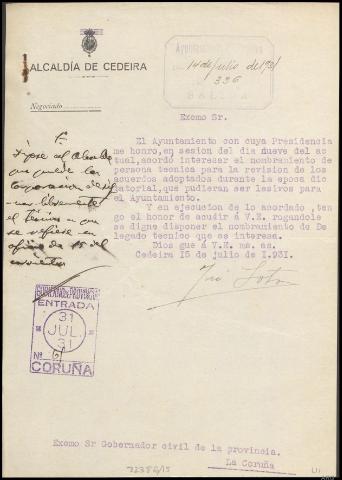 ALCALDÍA DE CEDEIRA
Negociado
Ayuntamiento
14 de Julio de 1931
336
SALIDA
Excmo Sr.
El Ayuntamiento con cuya Presidencia
me honro, en sesion del dia nueve del ac
tual, acordó interesar el nombramiento de
persona tecnica para la revision de los
acuerdos adoptados durante la epoca dic
tatorial, que pudieran ser lesivos para
el Ayuntamiento.
Y en ejecucion de lo acordado, ten
go el honor de acudir á V.E. rogandole
se digne disponer el nombramiento de De
legado tecnico que se interesa.
Dios gue á V.E. ms. as.
Cedeira 15 de julio de I.931.
al Alcalde
que puede la
Corporacion
libremente
el Tecnico a que
se refiere en
oficio de 15 del
corriente
ENTRADA
31
JUL.
31
Nº
CORUÑA
Excmo Sr Gobernador civil de la provincia.
La Coruña